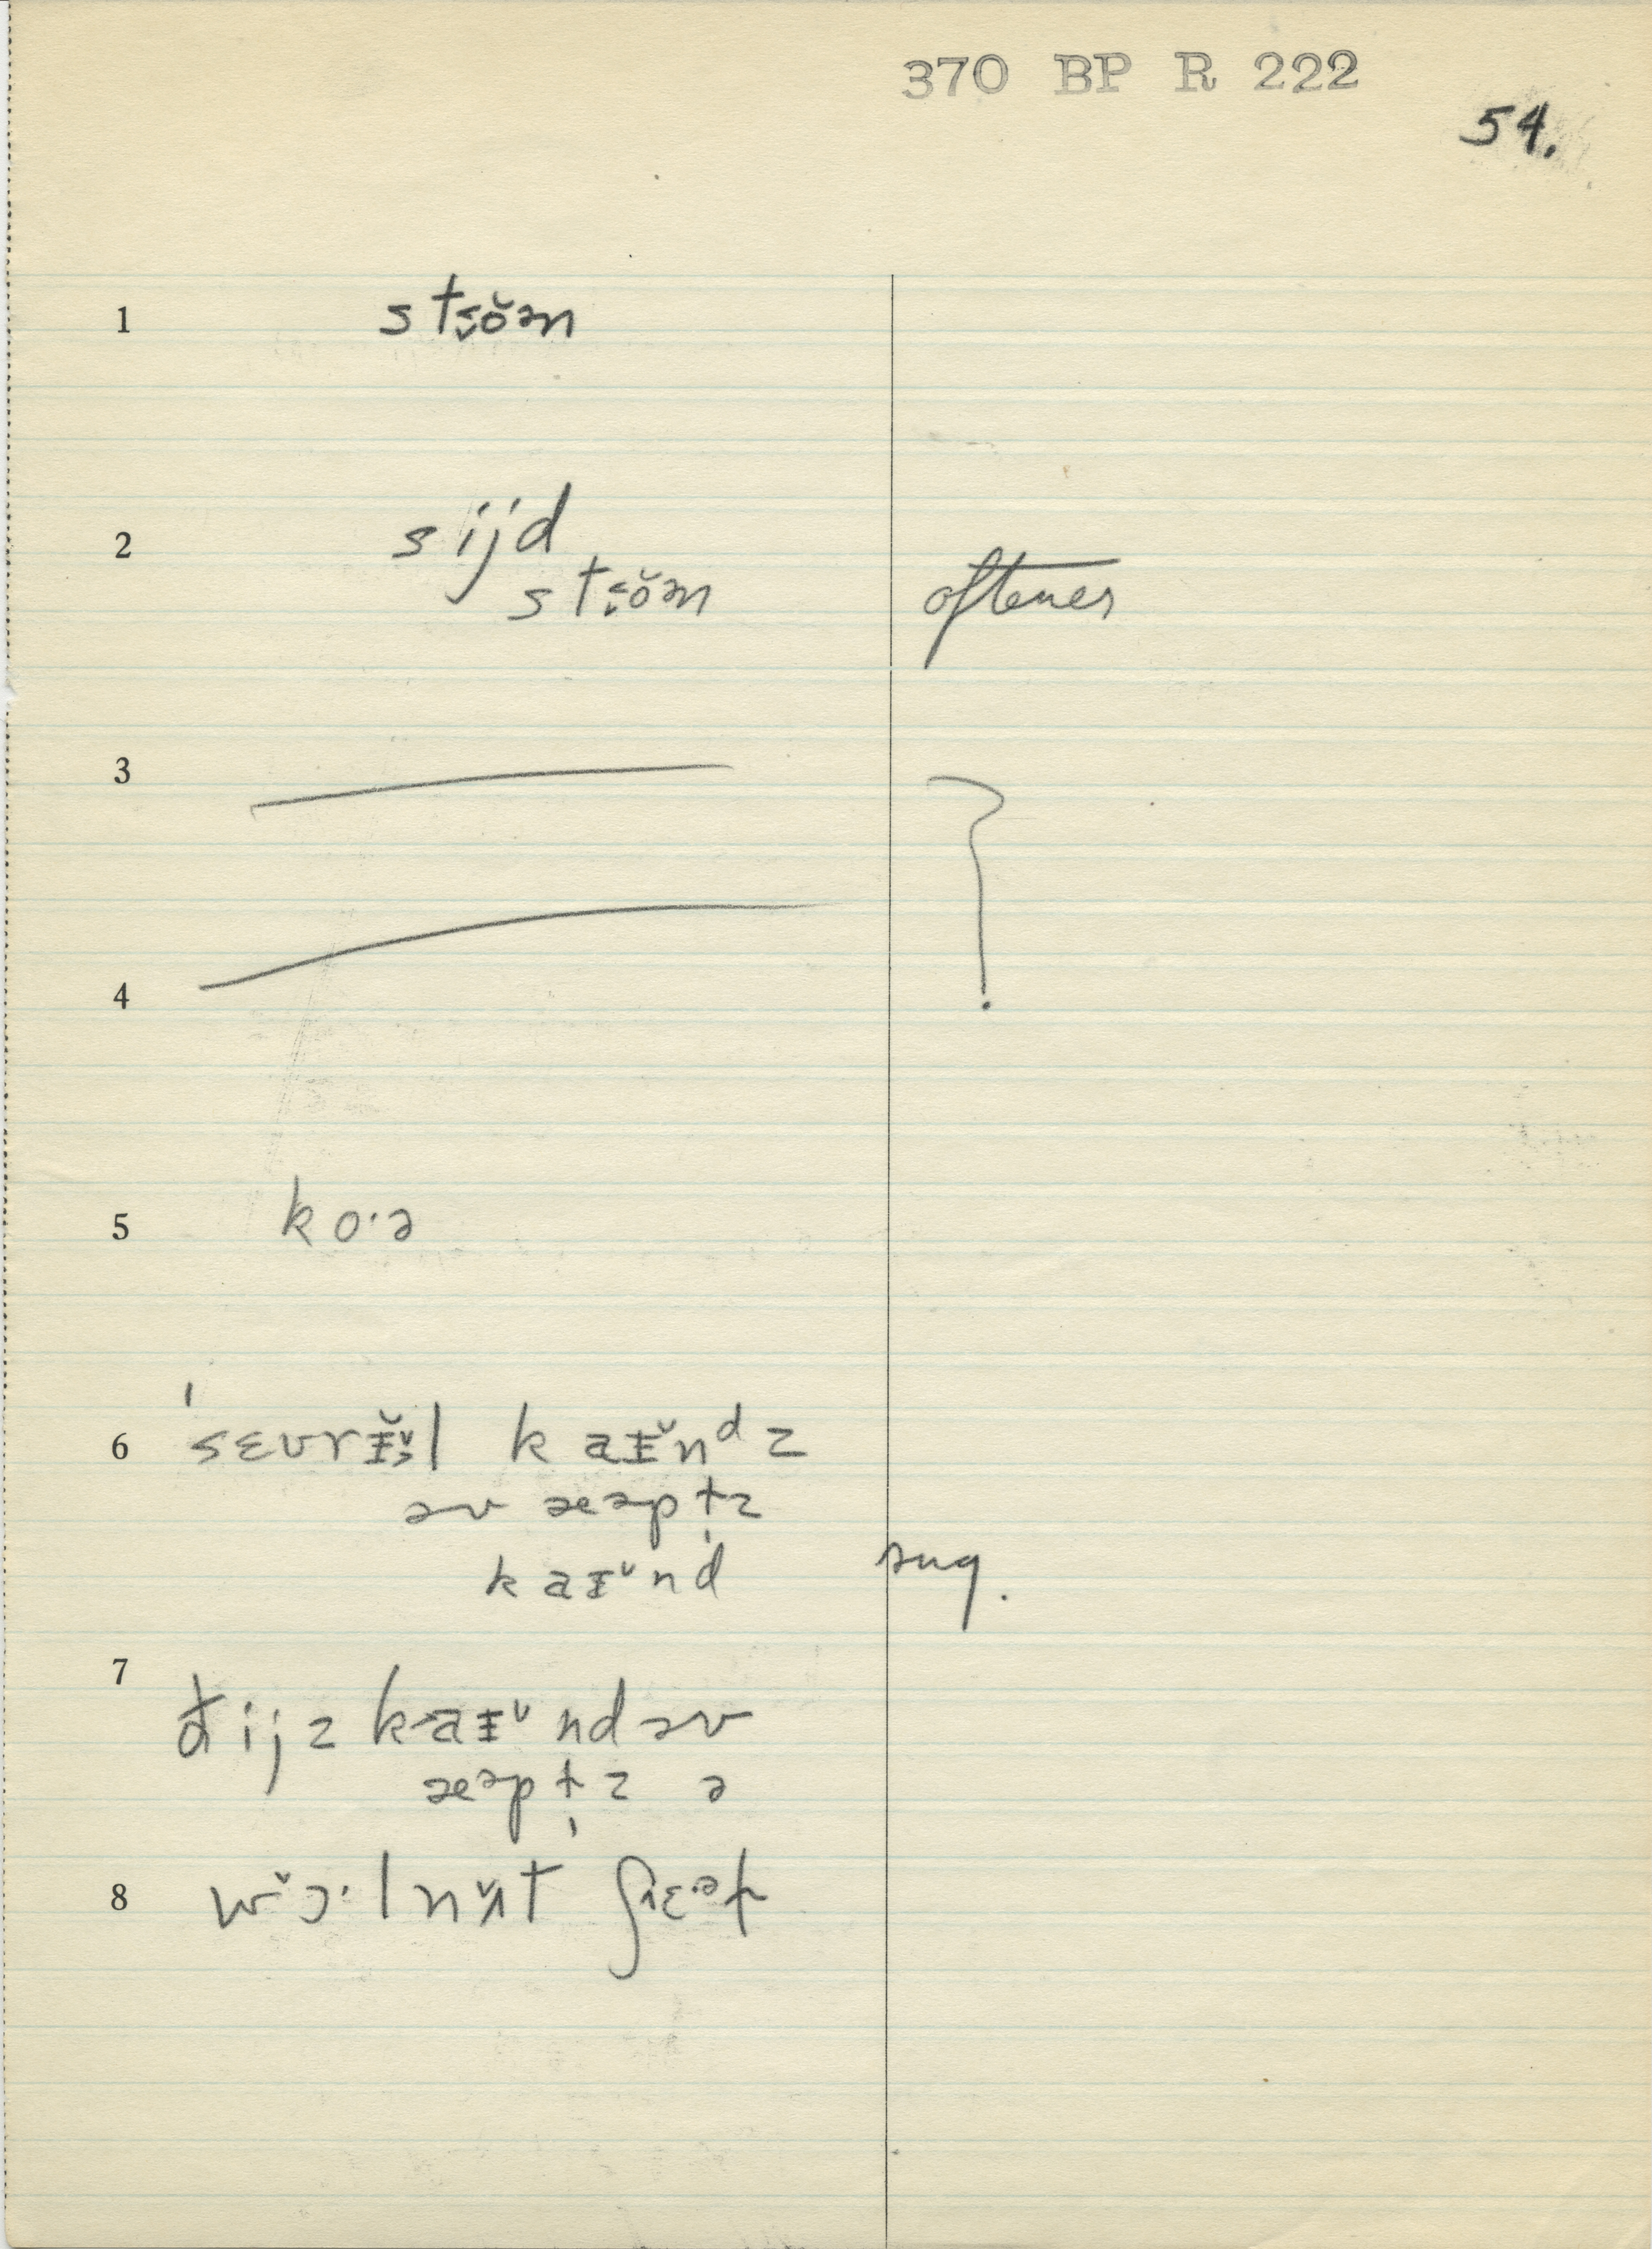 370 BP R 222
54.
1 stꞩŏ̯ən
2 sijd
stꞩŏən oftener
3 ?
4
5 ko·ə
6 ˈsɛvrɪ̵̆l kaɪ̵̆nᵈz
əv æəpt̩z
kaɪ̵̆nd sug.
7 đijz kaɪ̵̆nd əv
æᵊpt̩z ə
8 wɔ̆·lnʌ̆t